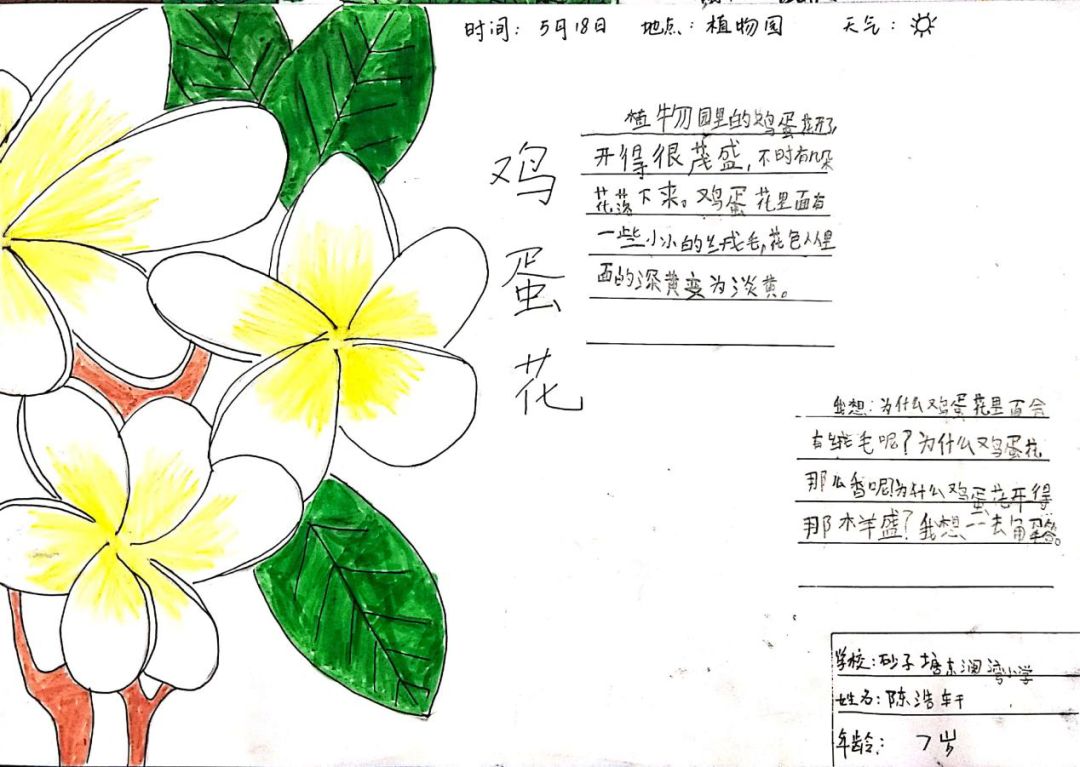 时间: 5月18日 地点: 植物园 天气:
鸡蛋花
植物园里的鸡蛋花开了,
开得很茂盛,不时有几朵
花落下来。鸡蛋花里面有
一些小小的绒毛,花色从里
面的深黄变为淡黄。
我想:为什么鸡蛋花里面会
有绒毛呢?为什么鸡蛋花
那么香呢?为什么鸡蛋花开得
那木羊盛?我想一一去解答。
学校:砂子塘东澜湾小学
姓名:陈浩轩
年龄: 7岁